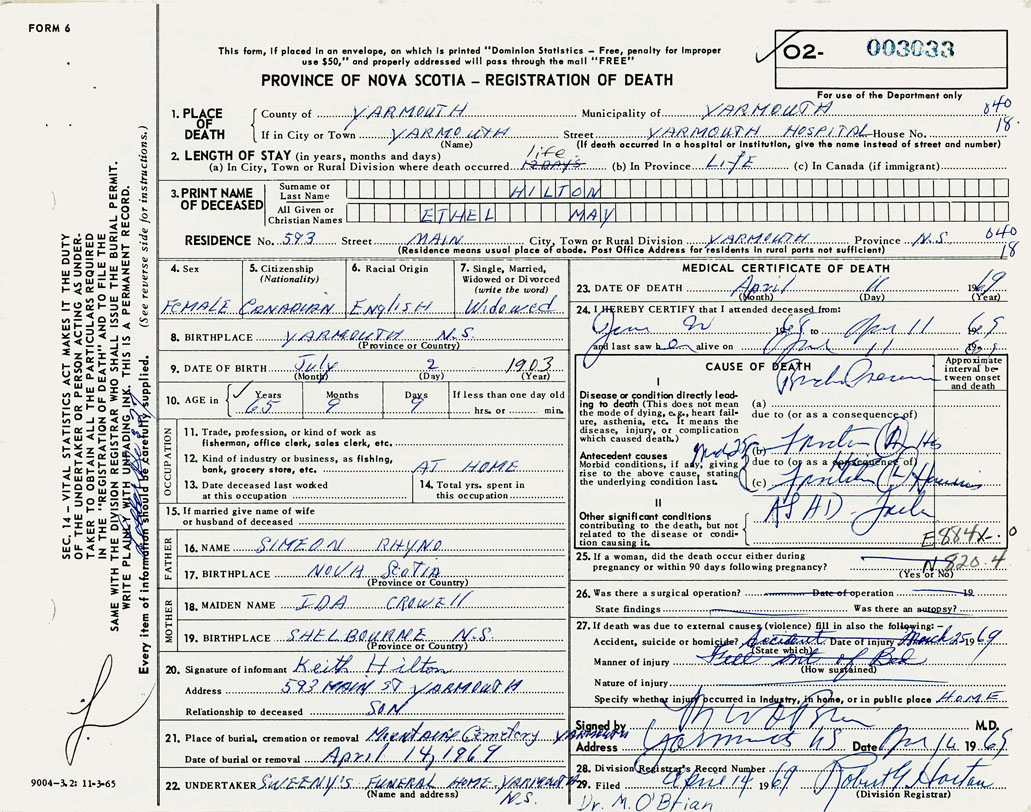 FORM 6
This form, if placed in an envelope, on which is printed "Dominion Statistics – Free, penalty for improper
use $50," and properly addressed will pass through the mail "FREE"
PROVINCE OF NOVA SCOTIA – REGISTRATION OF DEATH
O2- 003033
For use of the Department only
1. PLACE OF DEATH County of YARMOUTH Municipality of YARMOUTH 040
If in City or Town YARMOUTH Street YARMOUTH HOSPITAL House No. 18.
(Name) (If death occurred in a hospital or institution, give the name instead of street and number)
2. LENGTH OF STAY (in years, months and days) life
(a) In City, Town or Rural Division where death occurred (b) In Province LIFE (c) In Canada (if immigrant)
3. PRINT NAME OF DECEASED Surname or Last Name HILTON
All Given or Christian Names ETHEL MAY
RESIDENCE No. 593 Street MAIN City, Town or Rural Division YARMOUTH Province N.S. 040
(Residence means usual place of abode. Post Office Address for residents in rural parts not sufficient) 18
4. Sex 5. Citizenship (Nationality) 6. Racial Origin 7. Single, Married, Widowed or Divorced (write the word)
FEMALE CANADIAN English Widowed
8. BIRTHPLACE YARMOUTH N.S.
(Province or Country)
9. DATE OF BIRTH July 2 1903
(Month) (Day) (Year)
10. AGE in Years Months Days If less than one day old
65 9 9 hrs. or min.
OCCUPATION
11. Trade, profession, or kind of work as
fisherman, office clerk, sales clerk, etc.
12. Kind of industry or business, as fishing,
bank, grocery store, etc. AT HOME
13. Date deceased last worked
at this occupation
14. Total yrs. spent in
this occupation
15. If married give name of wife
or husband of deceased
FATHER
16. NAME SIMEON RHYNO
17. BIRTHPLACE NOVA SCOTIA
(Province or Country)
MOTHER
18. MAIDEN NAME IDA CROWELL
19. BIRTHPLACE SHELBOURNE N.S.
(Province or Country)
20. Signature of informant Keith Hilton
Address 593 MAIN ST YARMOUTH
Relationship to deceased SON
21. Place of burial, cremation or removal Cemetery YARMOUTH
Date of burial or removal April 14, 1969
22. UNDERTAKER SWEENY'S FUNERAL HOME, YARMOUTH
(Name and address) N.S.
MEDICAL CERTIFICATE OF DEATH
23. DATE OF DEATH April 11 1969
(Month) (Day) (Year)
24. I HEREBY CERTIFY that I attended deceased from:
to Apr 11 1969
and last saw h alive on 11 19
CAUSE OF DEATH
Approximate interval between onset and death
I
Disease or condition directly leading to death (This does not mean
the mode of dying, e.g., heart failure, asthenia, etc. It means the
disease, injury, or complication
which caused death.)
(a)
due to (or as a consequence of)
Antecedent causes
Morbid conditions, if any, giving
rise to the above cause, stating
the underlying condition last.
(b)
due to (or as a consequence of)
(c)
II
Other significant conditions
contributing to the death, but not
related to the disease or condition causing it.
ASHD
E 884X
N 820.4
25. If a woman, did the death occur either during
pregnancy or within 90 days following pregnancy?
(Yes or No)
26. Was there a surgical operation? Date of operation 19
State findings Was there an autopsy?
27. If death was due to external causes (violence) fill in also the following:–
Accident, suicide or homicide? Accident Date of injury March 25 1969
(State which)
Manner of injury Fell out of Bed
(How sustained)
Nature of injury
Specify whether injury occurred in industry, in home, or in public place HOME
Signed by M.D.
Address Yarmouth NS Date Apr 14 1969
28. Division Registrar's Record Number
29. Filed April 14 1969
(Division Registrar)
Dr. M. O'Brian
SEC. 14 – VITAL STATISTICS ACT MAKES IT THE DUTY
OF THE UNDERTAKER OR PERSON ACTING AS UNDER-
TAKER TO OBTAIN ALL THE PARTICULARS REQUIRED
IN THE "REGISTRATION OF DEATH" AND TO FILE THE
SAME WITH THE DIVISION REGISTRAR WHO SHALL ISSUE THE BURIAL PERMIT.
WRITE PLAINLY WITH UNFADING INK. THIS IS A PERMANENT RECORD.
Every item of information should be carefully supplied. (See reverse side for instructions.)
9004–3.2: 11-3-65